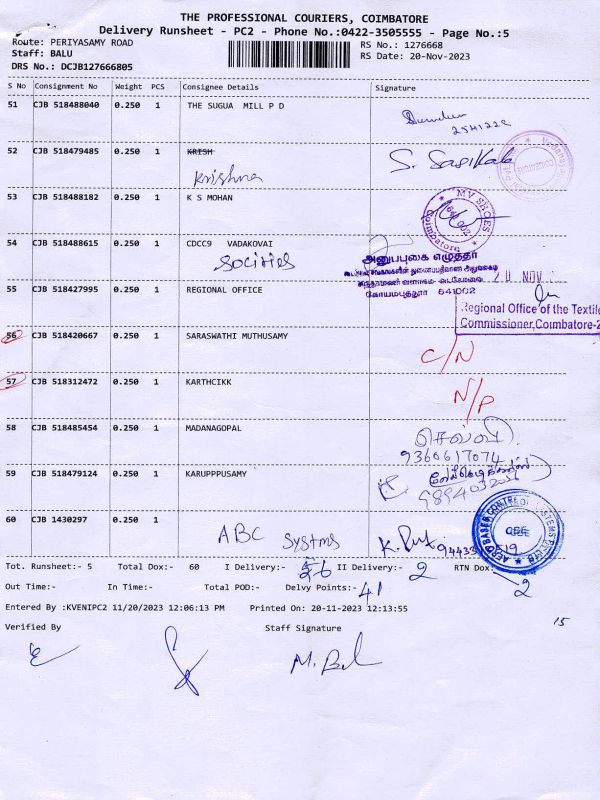 THE PROFESSIONAL COURIERS, COIMBATORE
Delivery Runsheet - PC2 - Phone No.:0422-3505555 - Page No.:5
Route: PERIYASAMY ROAD
RS No.: 1276668
Staff: BALU
RS Date: 20-Nov-2023
DRS No.: DCJB127666805
S No Consignment No Weight PCS Consignee Details Signature
51 CJB 518488040 0.250 1 THE SUGUA MILL P D
2541222
52 CJB 518479485 0.250 1 KRISH S. Sasikala
Krishna
53 CJB 518488182 0.250 1 K S MOHAN
MV SHOES
Coimbatore
54 CJB 518488615 0.250 1 CDCC9 VADAKOVAI
அனுபபுகை எழுத்தர்
கோயமபுத்தூர் 641002
20 NOV
55 CJB 518427995 0.250 1 REGIONAL OFFICE
Regional Office of the Textile
Commissioner,Coimbatore-2
56 CJB 518420667 0.250 1 SARASWATHI MUTHUSAMY C/N
57 CJB 518312472 0.250 1 KARTHCIKK N/P
58 CJB 518485454 0.250 1 MADANAGOPAL செல்வி
9360617074
59 CJB 518479124 0.250 1 KARUPPPUSAMY
60 CJB 1430297 0.250 1
ABC Systms
Tot. Runsheet:- 5 Total Dox:- 60 I Delivery:- 56 II Delivery:- 2 RTN Dox:- 2
Out Time:- In Time:- Total POD:- Delvy Points:- 41
Entered By :KVENIPC2 11/20/2023 12:06:13 PM Printed On: 20-11-2023 12:13:55
15
Verified By Staff Signature